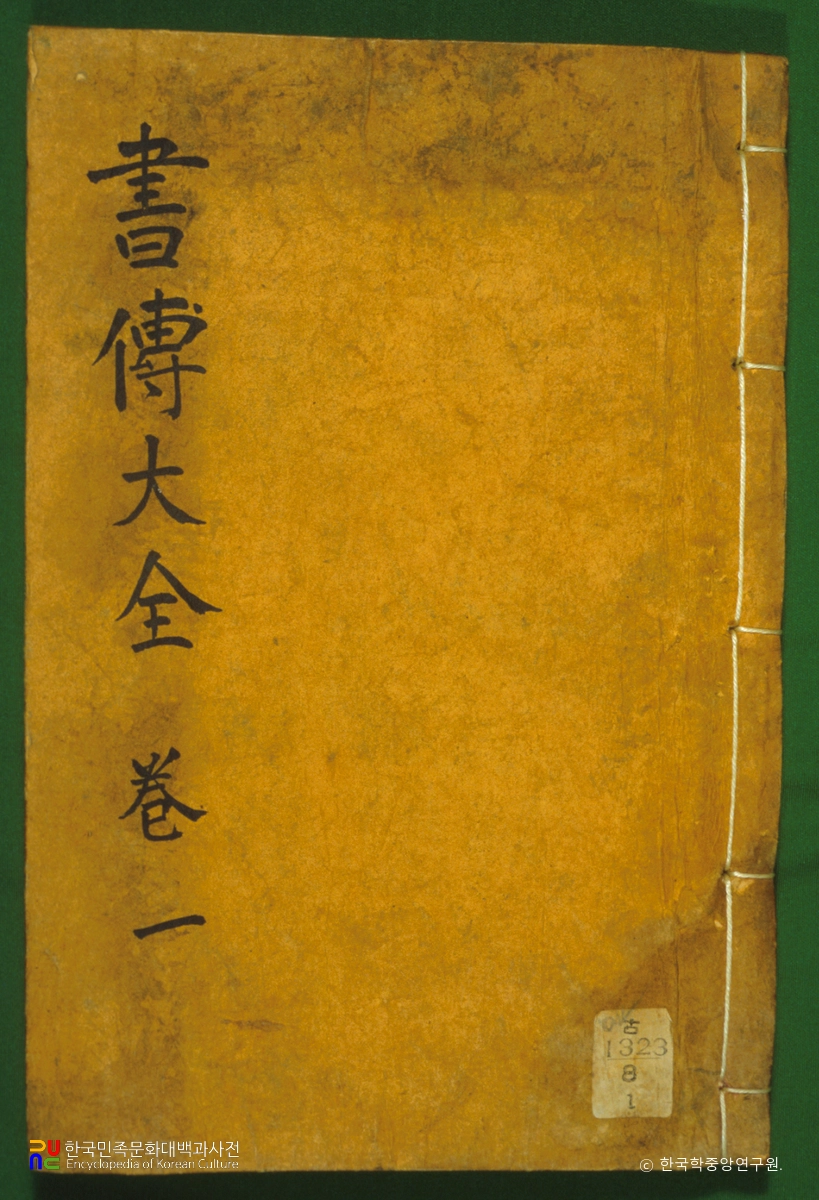 書傳大全 卷一
古
1323
8
1
한국민족문화대백과사전
Encyclopedia of Korean Culture
© 한국학중앙연구원.